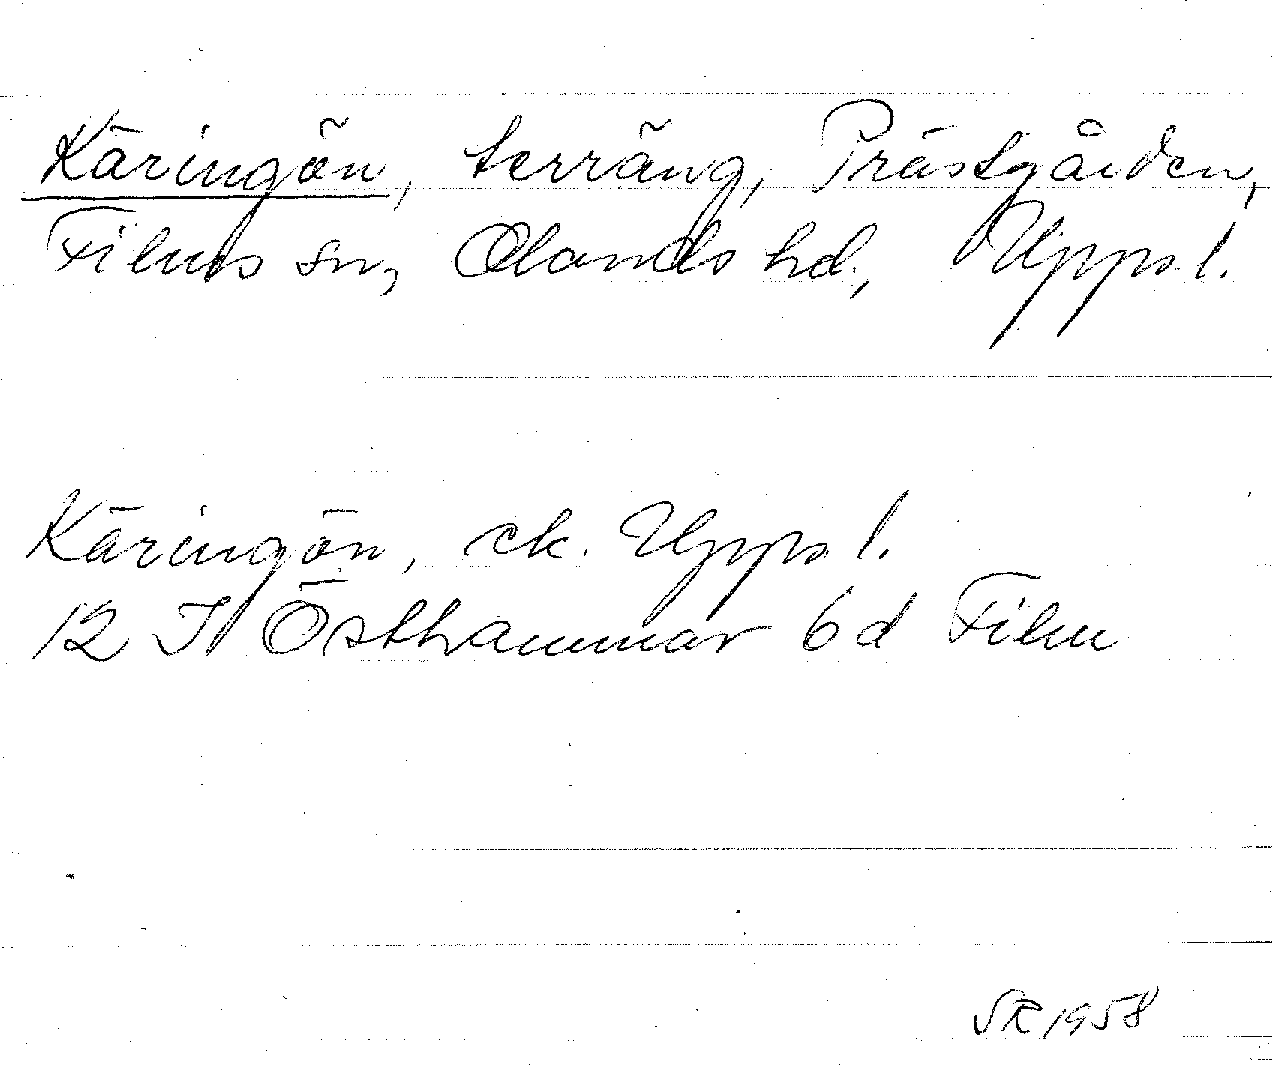 Käringön, terräng, Prästgården,
Films sn, Olands hd, Upps l.
Käringön, ek. Upps l.
12 I Östhammar 6d Film
SR 1958